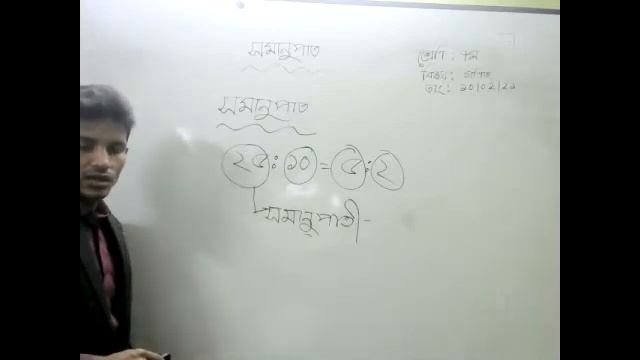 সমানুপাত
শ্রেণি : ৭ম
বিষয় : গণিত
তাং : ২০/০২/২২
সমানুপাত
২৫ : ১০ = ৫ : ২
সমানুপাতী -